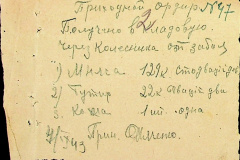 Приходной ордер №47
Получено в кладовую.
Через Колесника от забоя
1) Мяса 129к Сто двадцать
2) Тутир 22к Двацть два
3) Кожа 1 шт. одна
Прин.